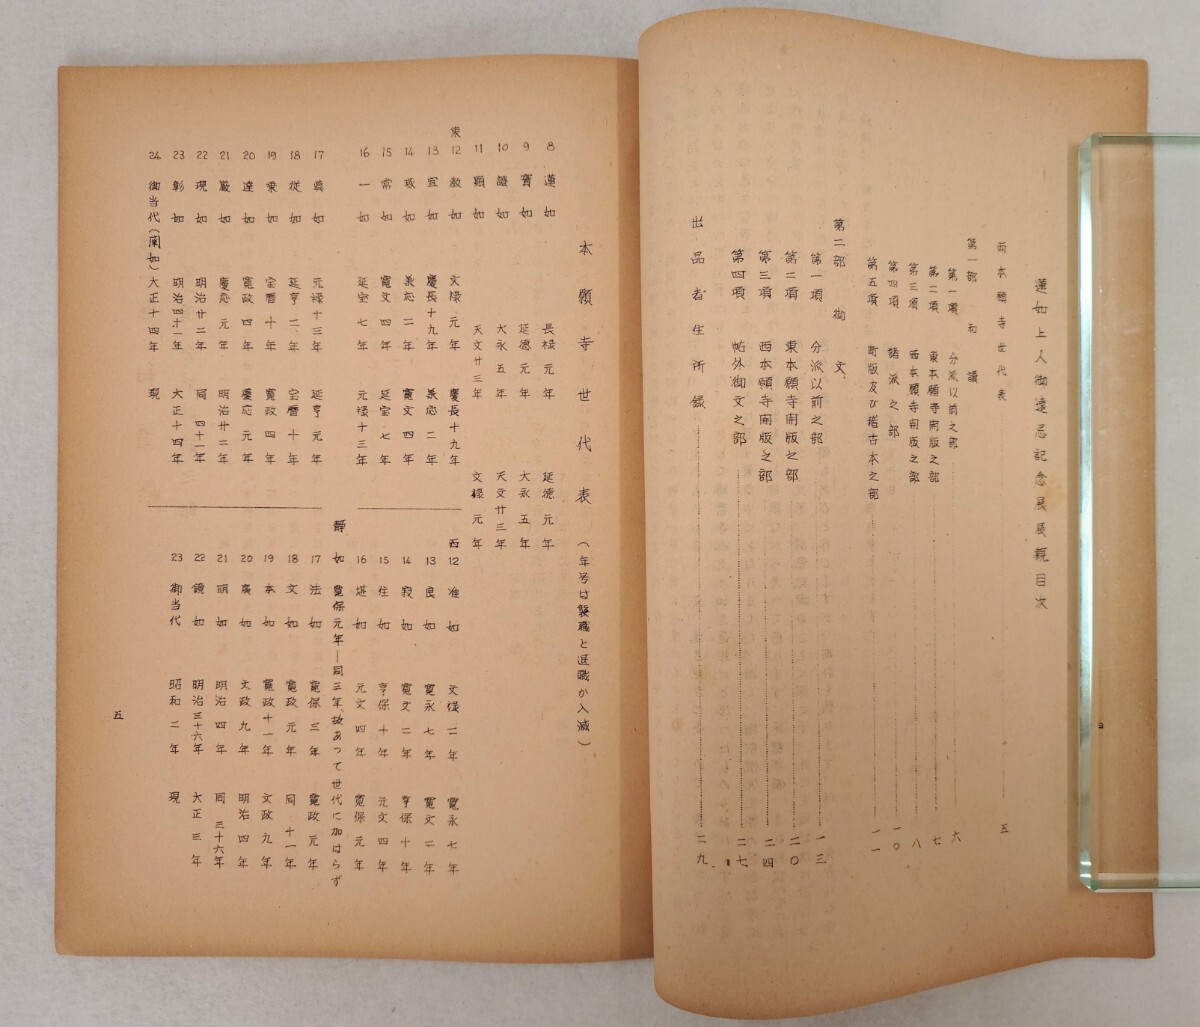 蓮如上人御遠忌記念展展観目次
両本願寺世代表 五
第一部 和讃
第一項 分派以前之部 六
第二項 東本願寺開版之部 七
第三項 西本願寺開版之部 八
第四項 諸派之部 一〇
第五項 町版及び稽古本之部 一一
第二部 御文
第一項 分派以前之部 一三
第二項 東本願寺開版之部 二〇
第三項 西本願寺開版之部 二四
第四項 帖外御文之部 二七
出品者住所録 二九
本願寺世代表(年号は襲職と退職か入滅)
8 蓮如 長禄元年 延徳元年
9 實如 延徳元年 大永五年
10 證如 大永五年 天文廿三年
11 顕如 天文廿三年 文禄元年
東
12 教如 文禄元年 慶長十九年
13 宣如 慶長十九年 承応二年
14 琢如 承応二年 寛文四年
15 常如 寛文四年 延宝七年
16 一如 延宝七年 元禄十三年
17 眞如 元禄十三年 延亨元年
18 従如 延亨二年 宝暦十年
19 乗如 宝暦十年 寛政四年
20 達如 寛政四年 慶応元年
21 厳如 慶応元年 明治廿二年
22 現如 明治廿二年 同四十一年
23 彰如 明治四十一年 大正十四年
24 御当代(闡如) 大正十四年 現
西
12 准如 文禄二年 寛永七年
13 良如 寛永七年 寛文二年
14 寂如 寛文二年 亨保十年
15 住如 亨保十年 元文四年
16 湛如 元文四年 寛保元年
静如 寛保元年―同三年、故あって世代に加はらず
17 法如 寛保三年 寛政元年
18 文如 寛政元年 同十一年
19 本如 寛政十一年 文政九年
20 廣如 文政九年 明治四年
21 明如 明治四年 同三十六年
22 鏡如 明治三十六年 大正三年
23 御当代 昭和二年 現
五